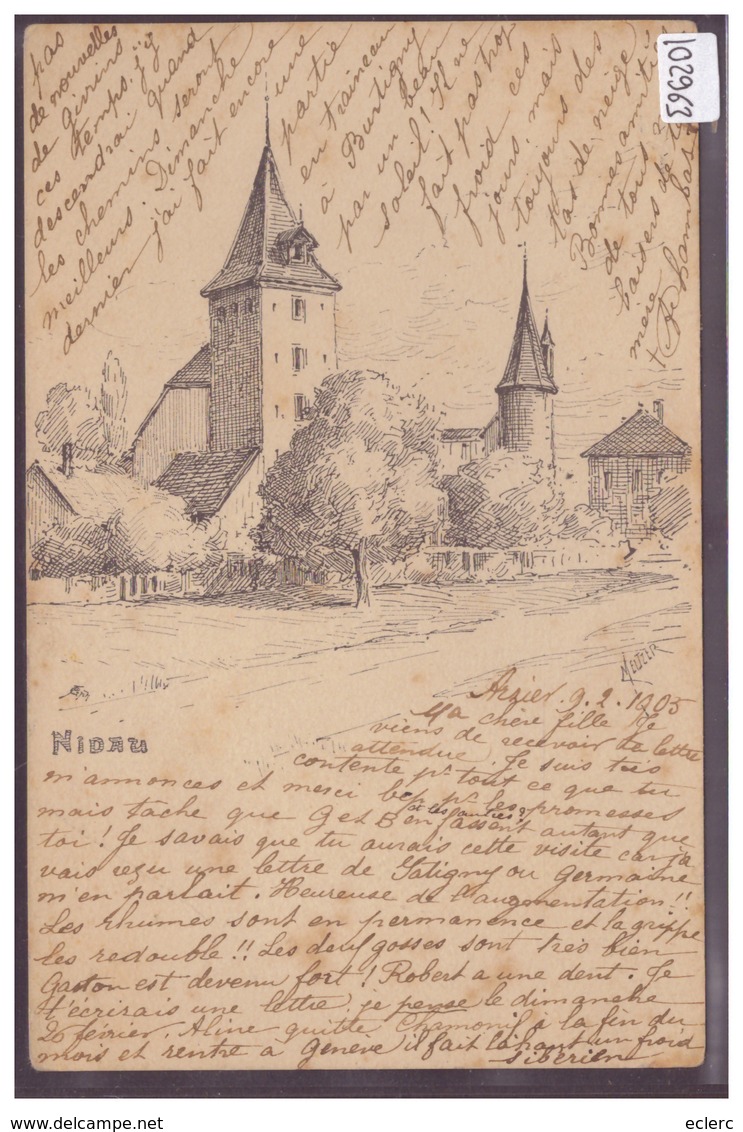 102963
MEUTER
NIDAU
Arzier. 9. 2. 1905
Ma chère fille Je
viens de recevoir ta lettre
attendue. Je suis très
contente pr tout ce que tu
m'annonces et merci bcp pr les promesses
mais tâche que G et B en fassent autant que
toi ! Je savais que tu aurais cette visite car j'a
vais reçu une lettre de Satigny où Germaine
m'en parlait. Heureuse de l'augmentation !!
Les rhumes sont en permanence et la grippe
les redouble !! Les deux gosses sont très bien
Gaston est devenu fort ! Robert a une dent. Je
t'écrirais une lettre je pense le dimanche
26 février. Aline quitte Chamonix à la fin du
mois et rentre à Genève il fait là haut un froid
sibérien
pas
de nouvelles
de Givrins
ces temps. j'y
descendrai quand
les chemins seront
meilleurs. Dimanche
dernier j'ai fait encore
une
partie
en traineau
à Burtigny
par un beau
soleil ! Il ne
fait pas trop
froid ces
jours, mais
toujours des
tas de neige
Bonnes amitiés
de tous
baisers de ta
mère
eclerc